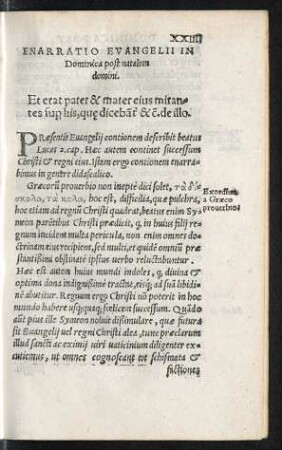 XXIIII
ENARRATIO EVANGELII IN
Dominica post natalem
domini.
Et erat pater & mater eius mirantes
sup his, quę dicebāt & c̄. de illo.
PRæsentis Euangelij contionem describit beatus
Lucas 2. cap. Hæc autem continet successum
Christi & regni eius. Istam ergo contionem enarrabimus
in genere didascalico.
Græcorū prouerbio non ineptè dici solet, τὰ δύσκολα,
τὰ καλα, hoc est, difficilia, quæ pulchra,
hoc etiam ad regnū Christi quadrat, beatus enim Symeon
parētibus Christi prædicit, q̃ in huius filij regnum
incident multa pericula, nam enim omnes doctrinam
eius recipient, sed multi, et quidē omniū præstantissimi
obstinatè ipsius uerbo reluctabuntur.
Hæc est autem huius mundi indoles, q̃ diuina &
optima dona indignissimè tractet, eisq; ad suā libidinē
abutitur. Regnum ergo Christi nō poterit in hoc
mundo habere usq;quaq; fœlicem successum. Quādo
aūt pius ille Symeon noluit dissimulare, quæ futura
sit Euangelij uel regni Christi alea, tunc præclarum
illud sancti ac eximij uiri uaticinium diligenter excutiemus,
ut omnes cognoscant ut schismata &
factiones
Exordium
a Græco
prouerbio